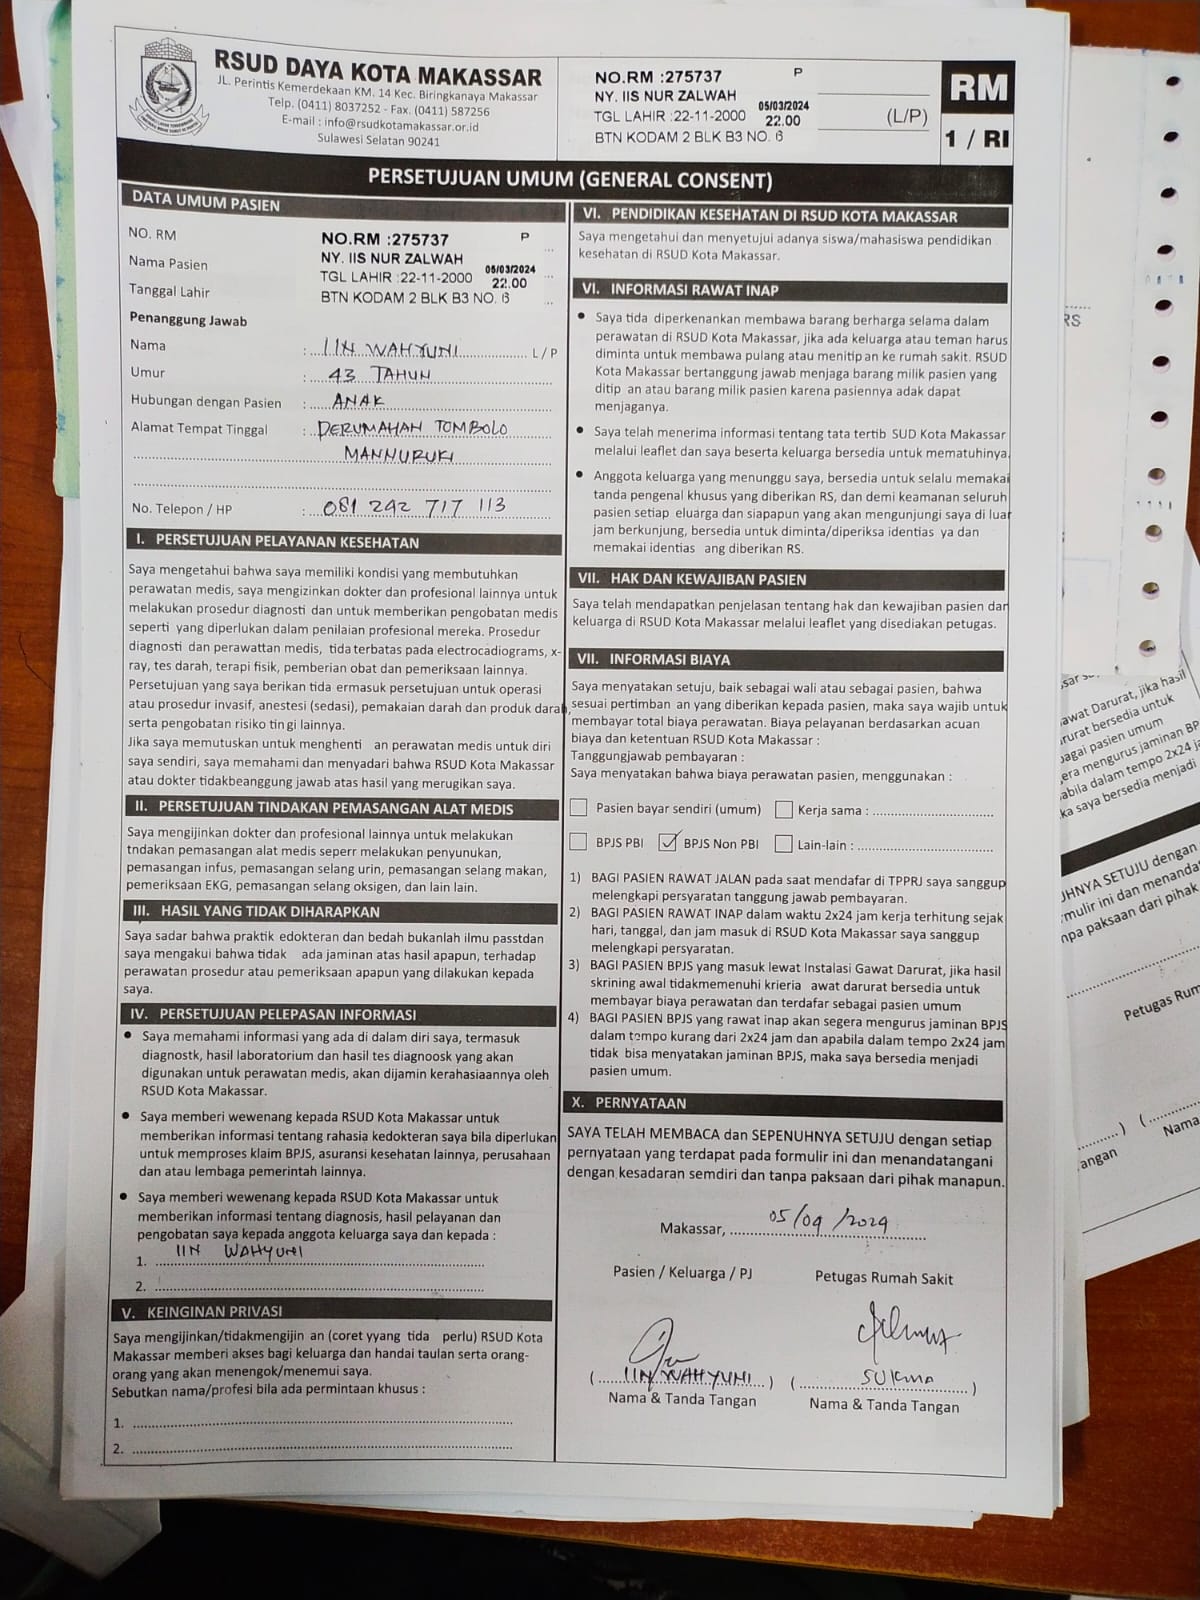 RSUD DAYA KOTA MAKASSAR
JL. Perintis Kemerdekaan KM. 14 Kec. Biringkanaya Makassar
Telp. (0411) 8037252 - Fax. (0411) 587256
E-mail : info@rsudkotamakassar.or.id
Sulawesi Selatan 90241
NO.RM :275737 P
NY. IIS NUR ZALWAH
TGL LAHIR :22-11-2000 05/03/2024 22.00
BTN KODAM 2 BLK B3 NO. 6
(L/P)
RM
1 / RI
PERSETUJUAN UMUM (GENERAL CONSENT)
DATA UMUM PASIEN
NO. RM
Nama Pasien
Tanggal Lahir
NO.RM :275737 P
NY. IIS NUR ZALWAH
TGL LAHIR :22-11-2000 05/03/2024 22.00
BTN KODAM 2 BLK B3 NO. 6
Penanggung Jawab
Nama : IIN WAHYUNI L / P
Umur : 43 TAHUN
Hubungan dengan Pasien : ANAK
Alamat Tempat Tinggal : PERUMAHAN TOMBOLO
MANNURUKI
No. Telepon / HP : 081 242 717 113
I. PERSETUJUAN PELAYANAN KESEHATAN
Saya mengetahui bahwa saya memiliki kondisi yang membutuhkan
perawatan medis, saya mengizinkan dokter dan profesional lainnya untuk
melakukan prosedur diagnosti dan untuk memberikan pengobatan medis
seperti yang diperlukan dalam penilaian profesional mereka. Prosedur
diagnosti dan perawattan medis, tida terbatas pada electrocadiograms, x-
ray, tes darah, terapi fisik, pemberian obat dan pemeriksaan lainnya.
Persetujuan yang saya berikan tida ermasuk persetujuan untuk operasi
atau prosedur invasif, anestesi (sedasi), pemakaian darah dan produk darah,
serta pengobatan risiko tin gi lainnya.
Jika saya memutuskan untuk menghenti an perawatan medis untuk diri
saya sendiri, saya memahami dan menyadari bahwa RSUD Kota Makassar
atau dokter tidakbeanggung jawab atas hasil yang merugikan saya.
II. PERSETUJUAN TINDAKAN PEMASANGAN ALAT MEDIS
Saya mengijinkan dokter dan profesional lainnya untuk melakukan
tndakan pemasangan alat medis seperr melakukan penyunukan,
pemasangan infus, pemasangan selang urin, pemasangan selang makan,
pemeriksaan EKG, pemasangan selang oksigen, dan lain lain.
III. HASIL YANG TIDAK DIHARAPKAN
Saya sadar bahwa praktik edokteran dan bedah bukanlah ilmu passtdan
saya mengakui bahwa tidak ada jaminan atas hasil apapun, terhadap
perawatan prosedur atau pemeriksaan apapun yang dilakukan kepada
saya.
IV. PERSETUJUAN PELEPASAN INFORMASI
● Saya memahami informasi yang ada di dalam diri saya, termasuk
diagnostk, hasil laboratorium dan hasil tes diagnoosk yang akan
digunakan untuk perawatan medis, akan dijamin kerahasiaannya oleh
RSUD Kota Makassar.
● Saya memberi wewenang kepada RSUD Kota Makassar untuk
memberikan informasi tentang rahasia kedokteran saya bila diperlukan
untuk memproses klaim BPJS, asuransi kesehatan lainnya, perusahaan
dan atau lembaga pemerintah lainnya.
● Saya memberi wewenang kepada RSUD Kota Makassar untuk
memberikan informasi tentang diagnosis, hasil pelayanan dan
pengobatan saya kepada anggota keluarga saya dan kepada :
1. IIN WAHYUNI
2.
V. KEINGINAN PRIVASI
Saya mengijinkan/tidakmengijin an (coret yyang tida perlu) RSUD Kota
Makassar memberi akses bagi keluarga dan handai taulan serta orang-
orang yang akan menengok/menemui saya.
Sebutkan nama/profesi bila ada permintaan khusus :
1.
2.
VI. PENDIDIKAN KESEHATAN DI RSUD KOTA MAKASSAR
Saya mengetahui dan menyetujui adanya siswa/mahasiswa pendidikan
kesehatan di RSUD Kota Makassar.
VI. INFORMASI RAWAT INAP
● Saya tida diperkenankan membawa barang berharga selama dalam
perawatan di RSUD Kota Makassar, jika ada keluarga atau teman harus
diminta untuk membawa pulang atau menitip an ke rumah sakit. RSUD
Kota Makassar bertanggung jawab menjaga barang milik pasien yang
ditip an atau barang milik pasien karena pasiennya adak dapat
menjaganya.
● Saya telah menerima informasi tentang tata tertib SUD Kota Makassar
melalui leaflet dan saya beserta keluarga bersedia untuk mematuhinya.
● Anggota keluarga yang menunggu saya, bersedia untuk selalu memakai
tanda pengenal khusus yang diberikan RS, dan demi keamanan seluruh
pasien setiap eluarga dan siapapun yang akan mengunjungi saya di luar
jam berkunjung, bersedia untuk diminta/diperiksa identias ya dan
memakai identias ang diberikan RS.
VII. HAK DAN KEWAJIBAN PASIEN
Saya telah mendapatkan penjelasan tentang hak dan kewajiban pasien dan
keluarga di RSUD Kota Makassar melalui leaflet yang disediakan petugas.
VII. INFORMASI BIAYA
Saya menyatakan setuju, baik sebagai wali atau sebagai pasien, bahwa
sesuai pertimban an yang diberikan kepada pasien, maka saya wajib untuk
membayar total biaya perawatan. Biaya pelayanan berdasarkan acuan
biaya dan ketentuan RSUD Kota Makassar :
Tanggungjawab pembayaran :
Saya menyatakan bahwa biaya perawatan pasien, menggunakan :
Pasien bayar sendiri (umum) Kerja sama :
BPJS PBI ✓ BPJS Non PBI Lain-lain :
1) BAGI PASIEN RAWAT JALAN pada saat mendafar di TPPRJ saya sanggup
melengkapi persyaratan tanggung jawab pembayaran.
2) BAGI PASIEN RAWAT INAP dalam waktu 2x24 jam kerja terhitung sejak
hari, tanggal, dan jam masuk di RSUD Kota Makassar saya sanggup
melengkapi persyaratan.
3) BAGI PASIEN BPJS yang masuk lewat Instalasi Gawat Darurat, jika hasil
skrining awal tidakmemenuhi krieria awat darurat bersedia untuk
membayar biaya perawatan dan terdafar sebagai pasien umum
4) BAGI PASIEN BPJS yang rawat inap akan segera mengurus jaminan BPJS
dalam tempo kurang dari 2x24 jam dan apabila dalam tempo 2x24 jam
tidak bisa menyatakan jaminan BPJS, maka saya bersedia menjadi
pasien umum.
X. PERNYATAAN
SAYA TELAH MEMBACA dan SEPENUHNYA SETUJU dengan setiap
pernyataan yang terdapat pada formulir ini dan menandatangani
dengan kesadaran semdiri dan tanpa paksaan dari pihak manapun.
Makassar, 05/04/2024
Pasien / Keluarga / PJ Petugas Rumah Sakit
( IIN WAHYUNI ) ( SUKMA )
Nama & Tanda Tangan Nama & Tanda Tangan
RS
awat Darurat, jika hasil
rurat bersedia untuk
bagai pasien umum
era mengurus jaminan BP
abila dalam tempo 2x24 ja
ka saya bersedia menjadi
UHNYA SETUJU dengan
mulir ini dan menanda
npa paksaan dari pihak
Petugas Rum
Nama
angan